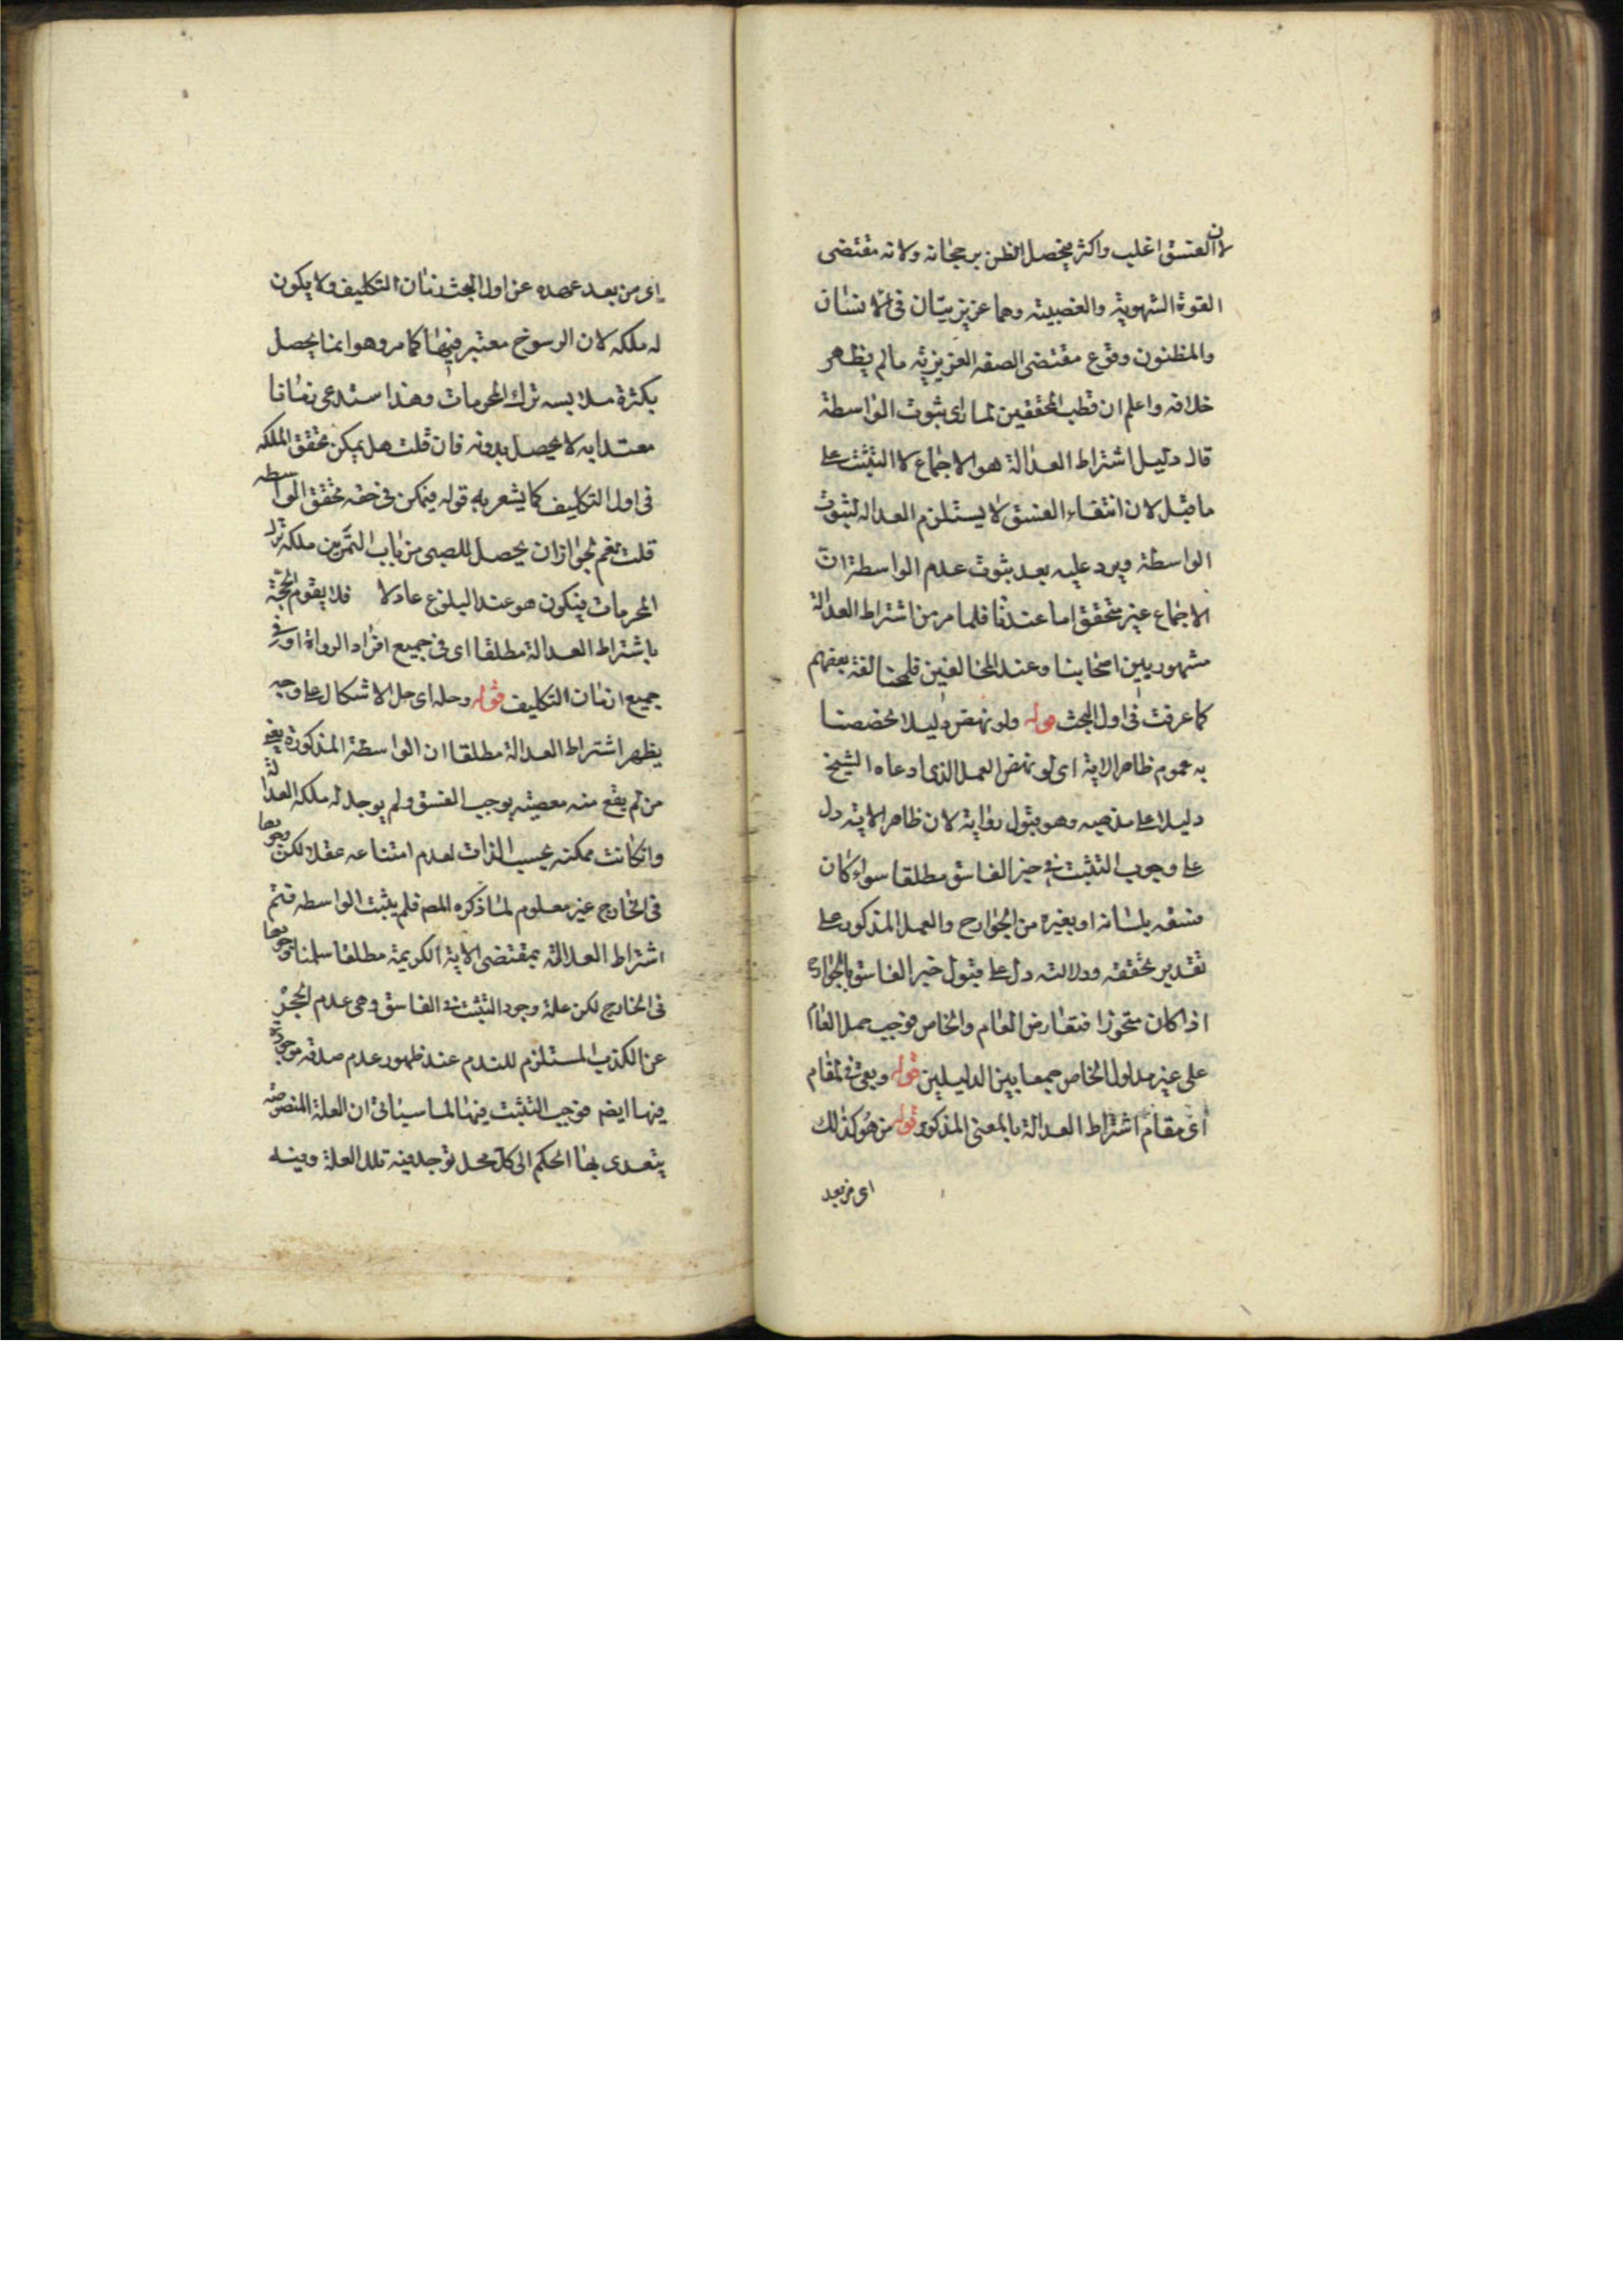 لان الفسق اغلب واكثر فيحصل الظن برجحانه ولانه مقتضى
القوة الشهوية والغضبية وهما غريزيتان فى الانسان
والمظنون وقوع مقتضى الصفه الغريزيه مالم يظهر
خلافه واعلم ان قطب المحققين لما راى ثبوت الواسطة
قال دليل اشتراط العدالة هو الاجماع لا التثبت على
ما قيل لان انتفاء الفسق لا يستلزم العداله لثبوت
الواسطة ويرد عليه بعد ثبوت عدم الواسطة ان
الاجماع غير متحقق اما عندنا فلما مر من اشتراط العدالة
مشهور بين اصحابنا وعند المخالفين فلمخالفة بعضهم
كما عرفت فى اول البحث قوله ولو نهض دليلا خصصنا
به عموم ظاهر الاية اى لو نهض العمل الذى ادعاه الشيخ
دليلا على مذهبه وهو قبول رواية لان ظاهر الاية دل
على وجوب التثبت فى خبر الفاسق مطلقا سواء كان
فسقه بلسانه او بغيره من الجوارح والعمل المذكور على
تقدير تحققه ودلالته دل على قبول خبر الفاسق بالجوارح
اذا كان متحرزا فتعارض العام والخاص فوجب حمل العام
على غير مدلول الخاص جمعا بين الدليلين قوله وبقى فى المقام
اى مقام اشتراط العدالة بالمعنى المذكور قوله من هو كذلك
اى من بعد
اى من بعد عهده عن اول البحث زمان التكليف ولا يكون
له ملكه لان الرسوخ معتبر فيها كما مر وهو انما يحصل
بكثرة ملابسه ترك المحرمات وهذا يستدعى زمانا
معتدابه لا يحصل بدونه فان قلت هل يمكن تحقق الملكه
فى اول التكليف كما يشعر به قوله فيمكن فى حقه تحقق الواسطه
قلت نعم لجواز ان يحصل للصبى من باب التمرين ملكه ترك
المحرمات فيكون هو عند البلوغ عادلا فلا يقوم الحجة
باشتراط العدالة مطلقا اى فى جميع افراد الرواة او فى
جميع ازمان التكليف قوله وحله اى حل الاشكال على وجه
يظهر اشتراط العدالة مطلقا ان الواسطة المذكورة يعنى
من لم يقع منه معصية يوجب الفسق ولم يوجد له ملكه العدالة
وان كانت ممكنه بحسب الذات لعدم امتناعه عقلا لكن وجودها
فى الخارج غير معلوم لما ذكره المص فلم يثبت الواسطه فتم
اشتراط العدالة بمقتضى الاية الكريمة مطلقا سلمنا وجودها
فى الخارج لكن علة وجود التثبت فى الفاسق وهى عدم الحجز
عن الكذب المستلزم للندم عند ظهور عدم صدقه موجودة
فيها ايضا فوجب التثبت فيها لما سياتى ان العلة المنصوصه
يتعدى بها الحكم الى كل محل توجد فيه تلك العلة وفيه